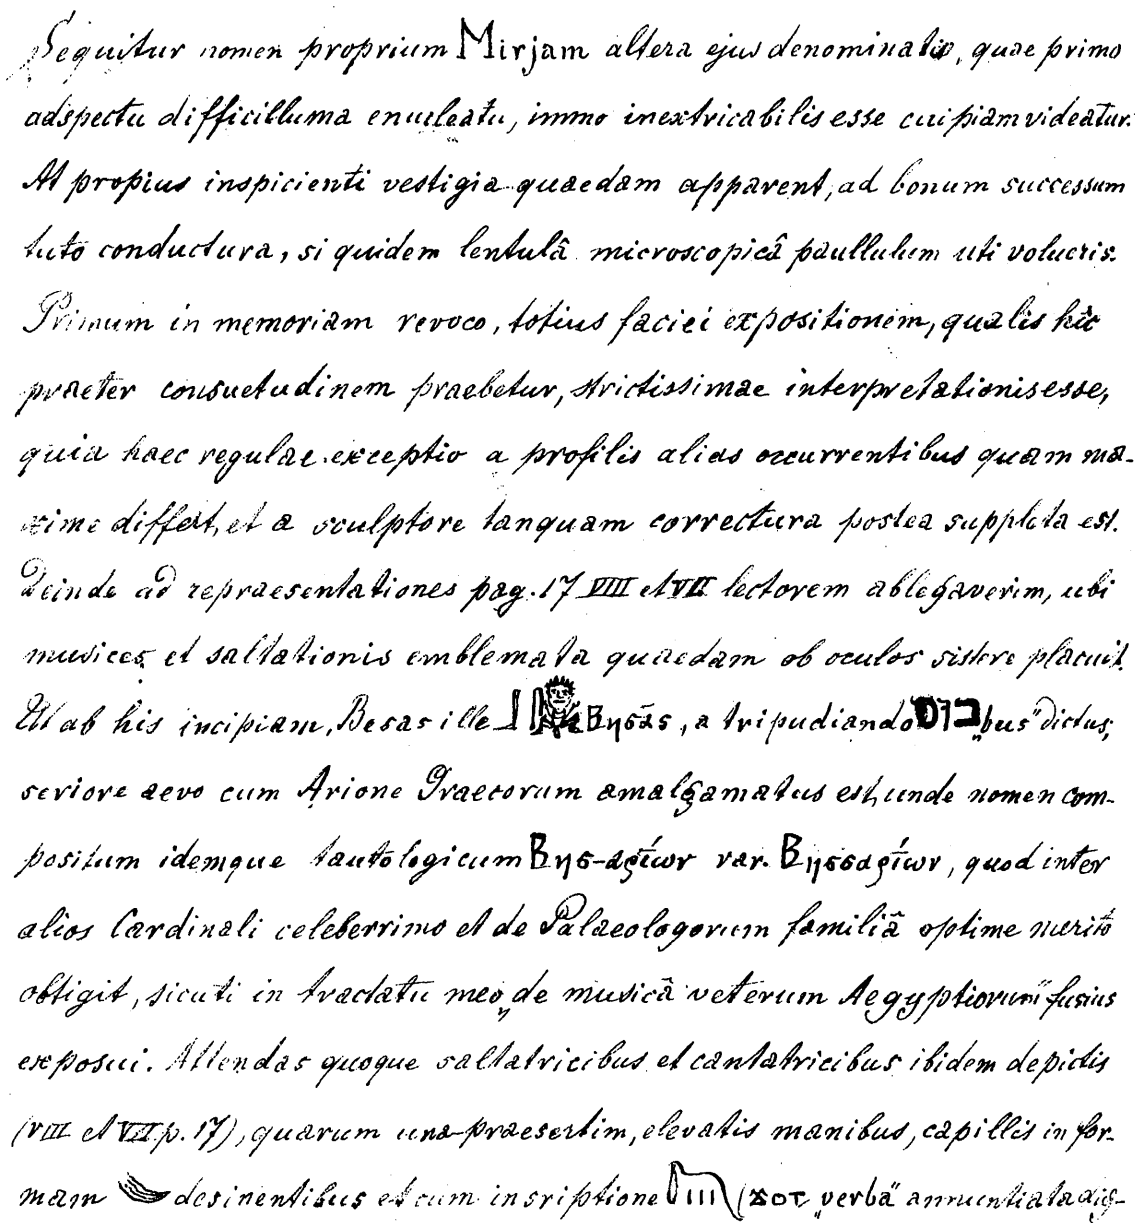 Sequitur nomen proprium Mirjam altera ejus denominatio, quae primo
adspectu difficilluma enucleatu, immo inextricabilis esse cuipiam videatur.
At propius inspicienti vestigia quaedam apparent, ad bonum successum
tuto conductura, si quidem lentulâ microscopicâ paullulum uti volueris.
Primum in memoriam revoco, totius faciei expositionem, qualis hic
praeter consuetudinem praebetur, strictissimae interpretationis esse,
quia haec regulae exceptio a profilis alias occurrentibus quam ma-
xime differt, et a sculptore tanquam correctura postea suppleta est.
Deinde ad repraesentationes pag. 17 VIII et VII lectorem ablegaverim, ubi
musices et saltationis emblemata quaedam ob oculos sistere placuit.
Ut ab his incipiam, Besas ille Βησᾶς, a tripudiando בוס „bus" dictus,
seriore aevo cum Arione Graecorum amalgamatus est, unde nomen com-
positum idemque tautologicum Βησ-αρίων var. Βησσαρίων, quod inter
alios Cardinali celeberrimo et de Palaeologorum familiâ optime merito
obtigit, sicuti in tractatu meo „de musicâ veterum Aegyptiorum" fusius
exposui. Attendas quoque saltatricibus et cantatricibus ibidem depictis
(VIII et VII p. 17), quarum una praesertim, elevatis manibus, capillis in for-
mam desinentibus et cum insriptione (ϫⲟⲧ „verba" annuntiata